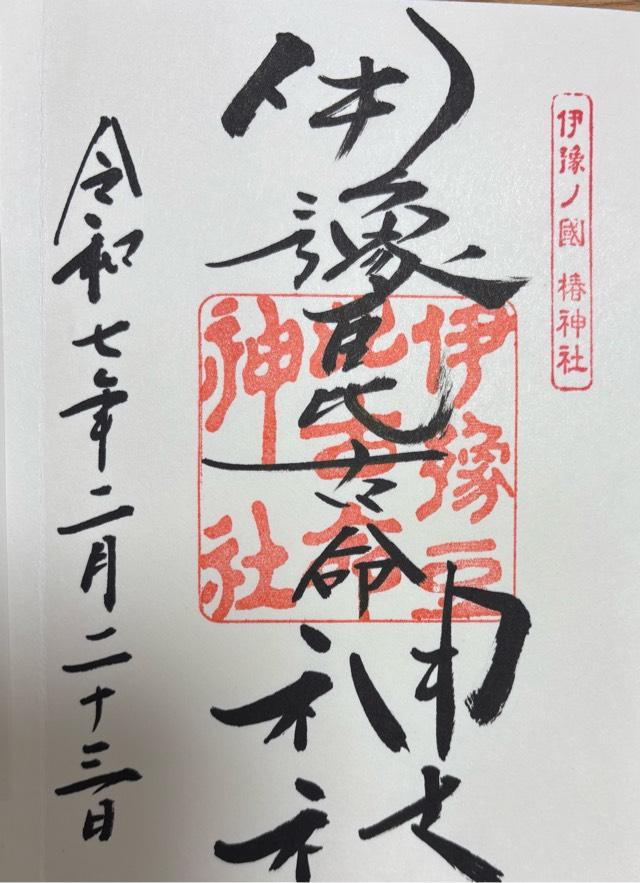 伊豫ノ國 椿神社
伊豫豆比古命神社
伊豫豆
比古命
神社
令和七年二月二十三日